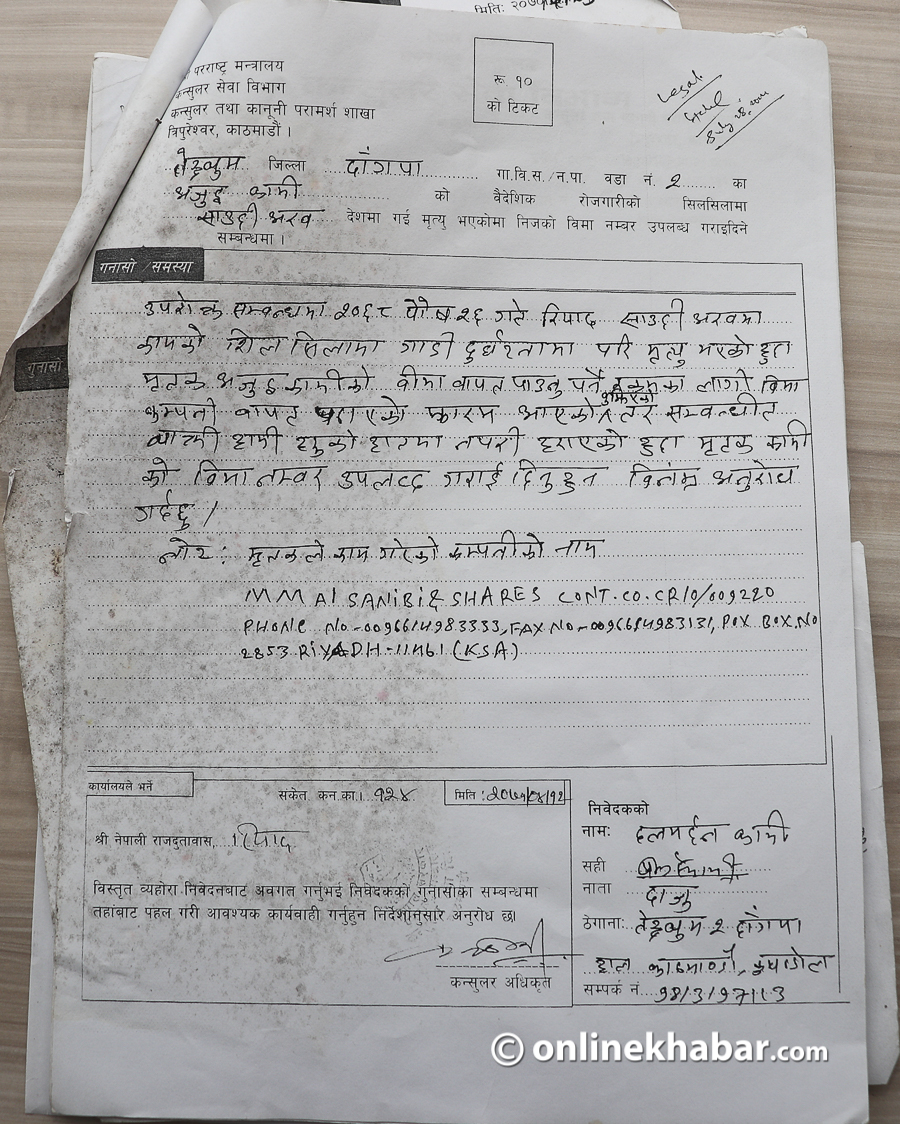 मिति: २०७५
परराष्ट्र मन्त्रालय
कन्सुलर सेवा विभाग
कन्सुलर तथा कानूनी परामर्श शाखा
त्रिपुरेश्वर, काठमाडौं ।
रू. १०
को टिकट
Legal
July 28, 2014
तेह्रथुम जिल्ला गा.वि.स./न.पा. वडा नं. २ का
अजुइ कामी को वैदेशिक रोजगारीको सिलसिलामा
साउदी अरव देशमा गई मृत्यु भएकोमा निजको विमा नम्बर उपलब्ध गराइदिने
सम्बन्धमा ।
गनासो / समस्या
गुनासो
उपरोक्त सम्वन्धमा २०६८ पौष २६ गते रियाद साउदी अरवमा
कामको शिलसिलामा गाडी दुर्घटनामा परि मृत्यु भएको हुदा
मृतक अजुइ कामीको वीमा वापत पाउनु पर्ने रकमका लागी विमा
कम्पनी वापत पठाएको फारम आएको तर सम्वन्धीत
हामी हरुको हातमा नपरी हराएको हुदा मृतक कामी
को विमा नम्वर उपलव्द गराई दिनुहुन विनम्र अनुरोध
गर्दछु ।
नोट: मृतकले काम गरेको कम्पनीको नाम
MMAI SANIBI & SHARES CONT.CO.CR10/009220
PHONE NO-0096614983333, FAX NO-0096614983131, POX BOX.NO
2853 RIYADH-11461 (KSA)
कार्यालयले भर्ने
संकेत कन.का. १२४
मिति : २०७१/०४/१२
श्री नेपाली राजदुतावास, रियाद
विस्तृत व्यहोरा निवेदनबाट अवगत गर्नुभई निवेदकको गुनासोका सम्बन्धमा
तहांबाट पहल गरी आवश्यक कार्यवाही गर्नुहुन निर्देशानुसार अनुरोध छ।
कन्सुलर अधिकृत
निवेदकको
नाम: दलमर्दन कामी
सही
नाता दाजु
ठेगाना: तेह्रथुम २
हाल काठमाण्डौ,
सम्पर्क नं. 9813197113
© onlinekhabar.com